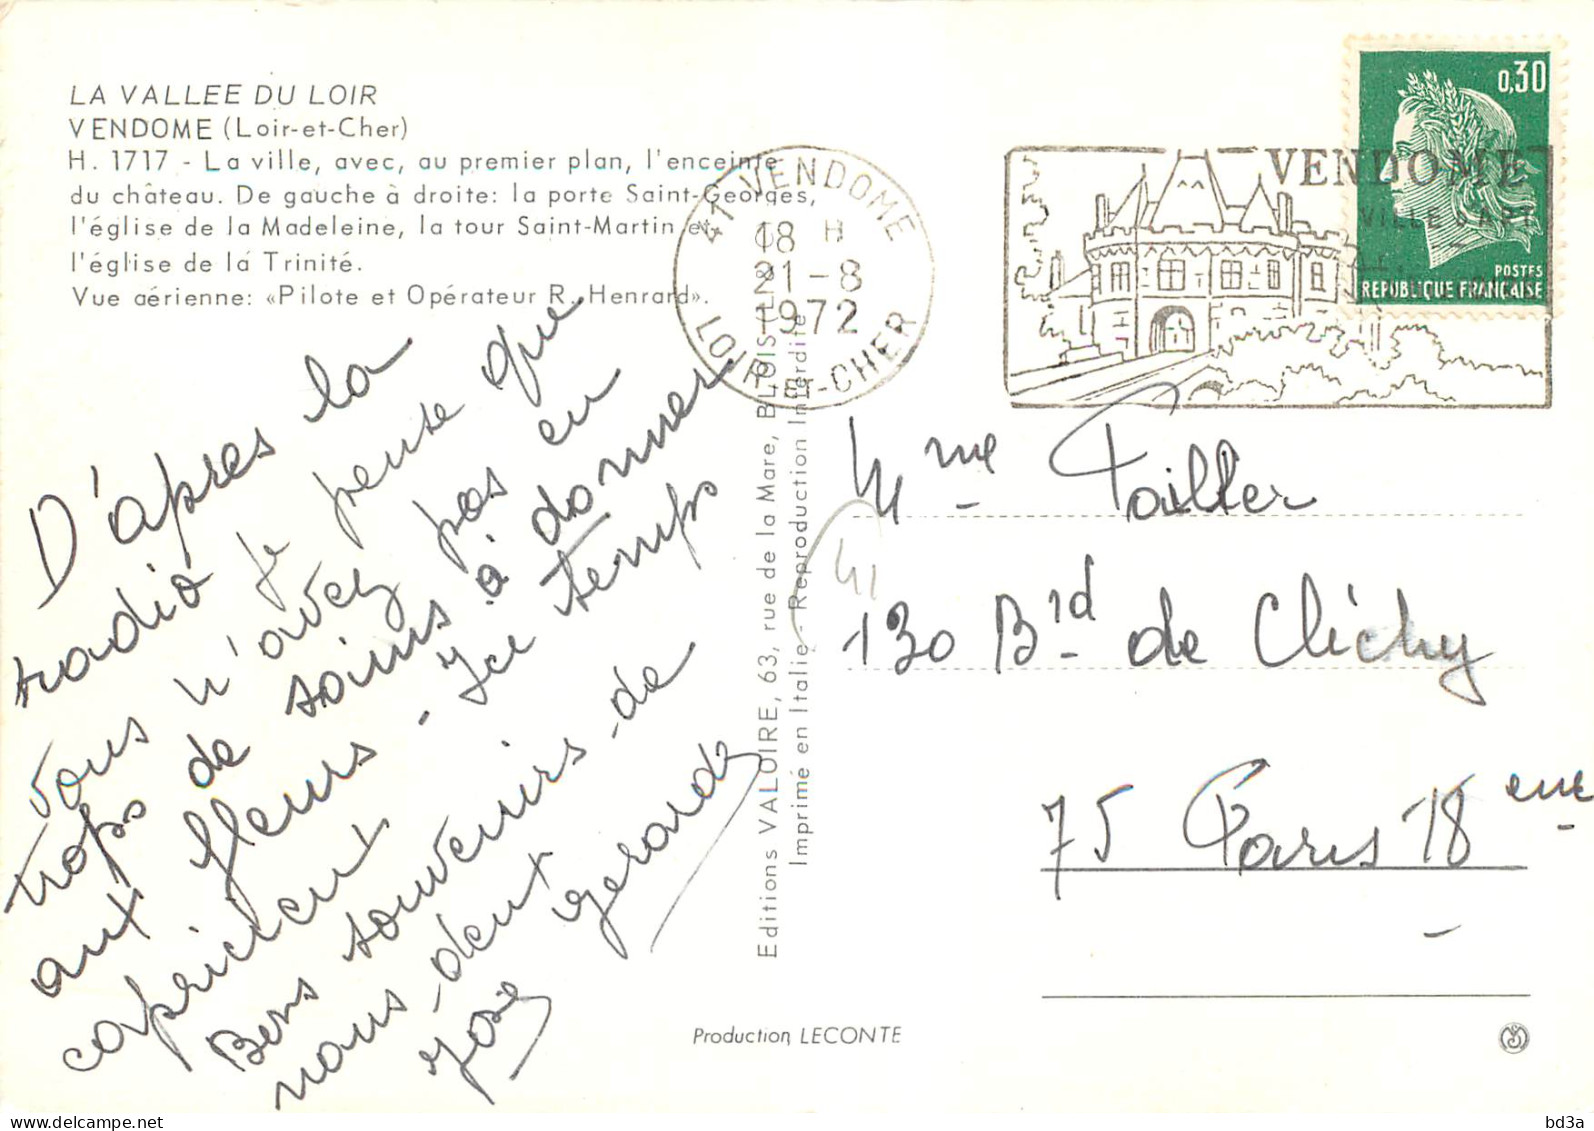 LA VALLEE DU LOIR
VENDOME (Loir-et-Cher)
H. 1717 - La ville, avec, au premier plan, l'enceinte
du château. De gauche à droite: la porte Saint-Georges,
l'église de la Madeleine, la tour Saint-Martin et
l'église de la Trinité.
Vue aérienne: «Pilote et Opérateur R. Henrard».
D'apres la
radio je pense que
vous n'avez pas en
trops de soins à donner
aux fleurs - Ici temps
capricieux
Bons souvenirs de
nous-deux
Gerard
Josie
41 VENDOME
18 H
21-8
1972
LOIR-ET-CHER
VENDOME
VILLE D'ART
0,30
POSTES
REPUBLIQUE FRANÇAISE
Editions VALOIRE, 63, rue de la Mare, BLOIS
Imprimé en Italie - Reproduction Interdite
Mme Tailler
41
130 Brd de Clichy
75 Paris 18eme
Production LECONTE
delcampe.net
bd3a